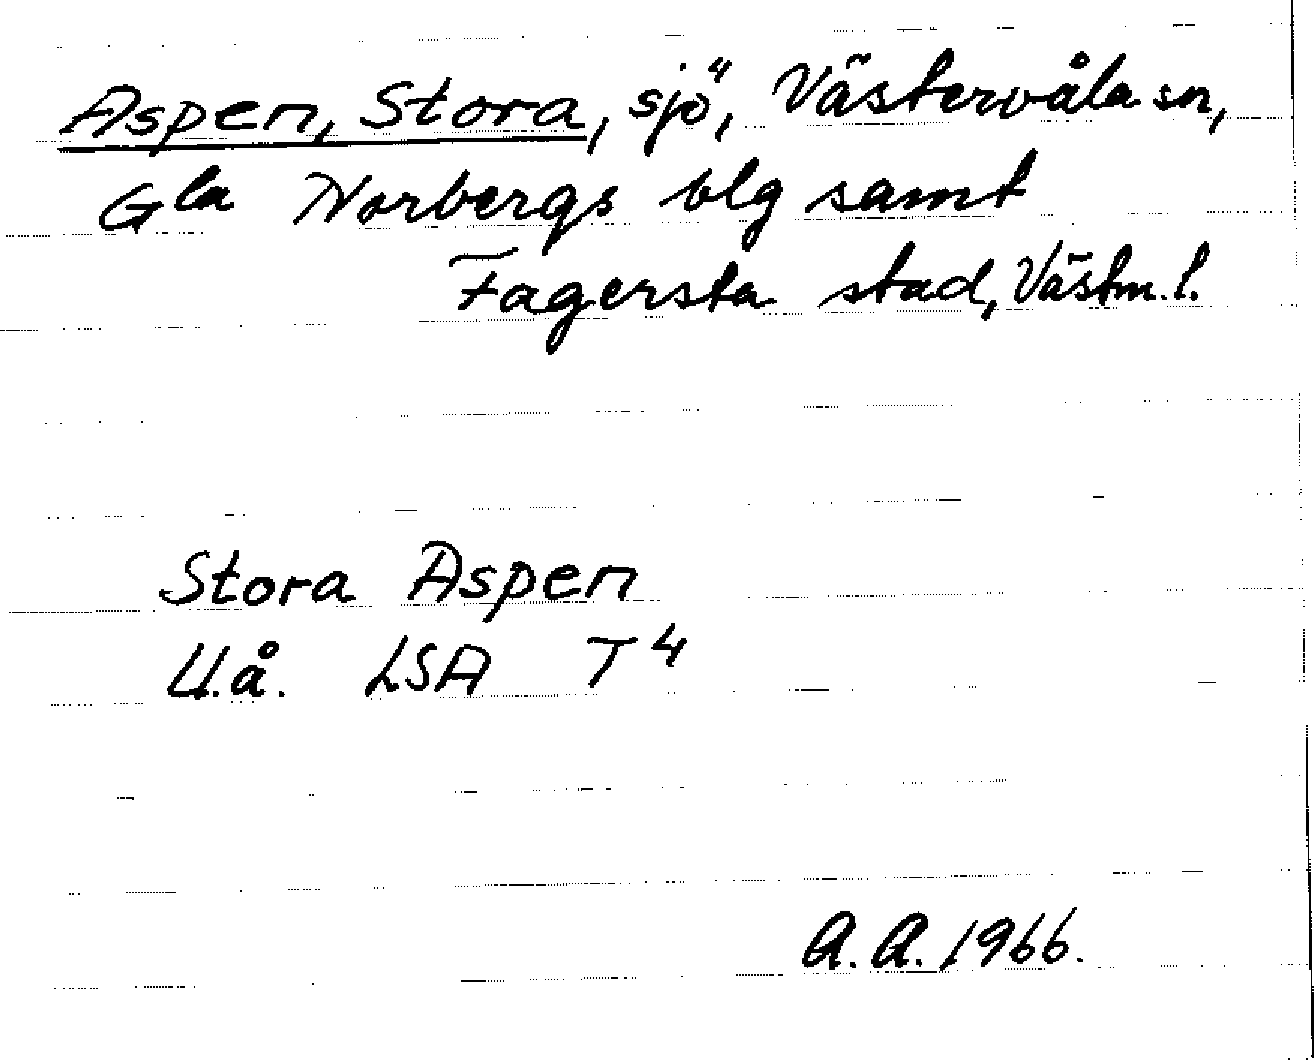 Aspen, Stora, sjö, Västervåla sn,
Gla Norbergs blg samt
Fagersta stad, Västm. l.
Stora Aspen
U.å. LSA T 4
A. A. 1966.